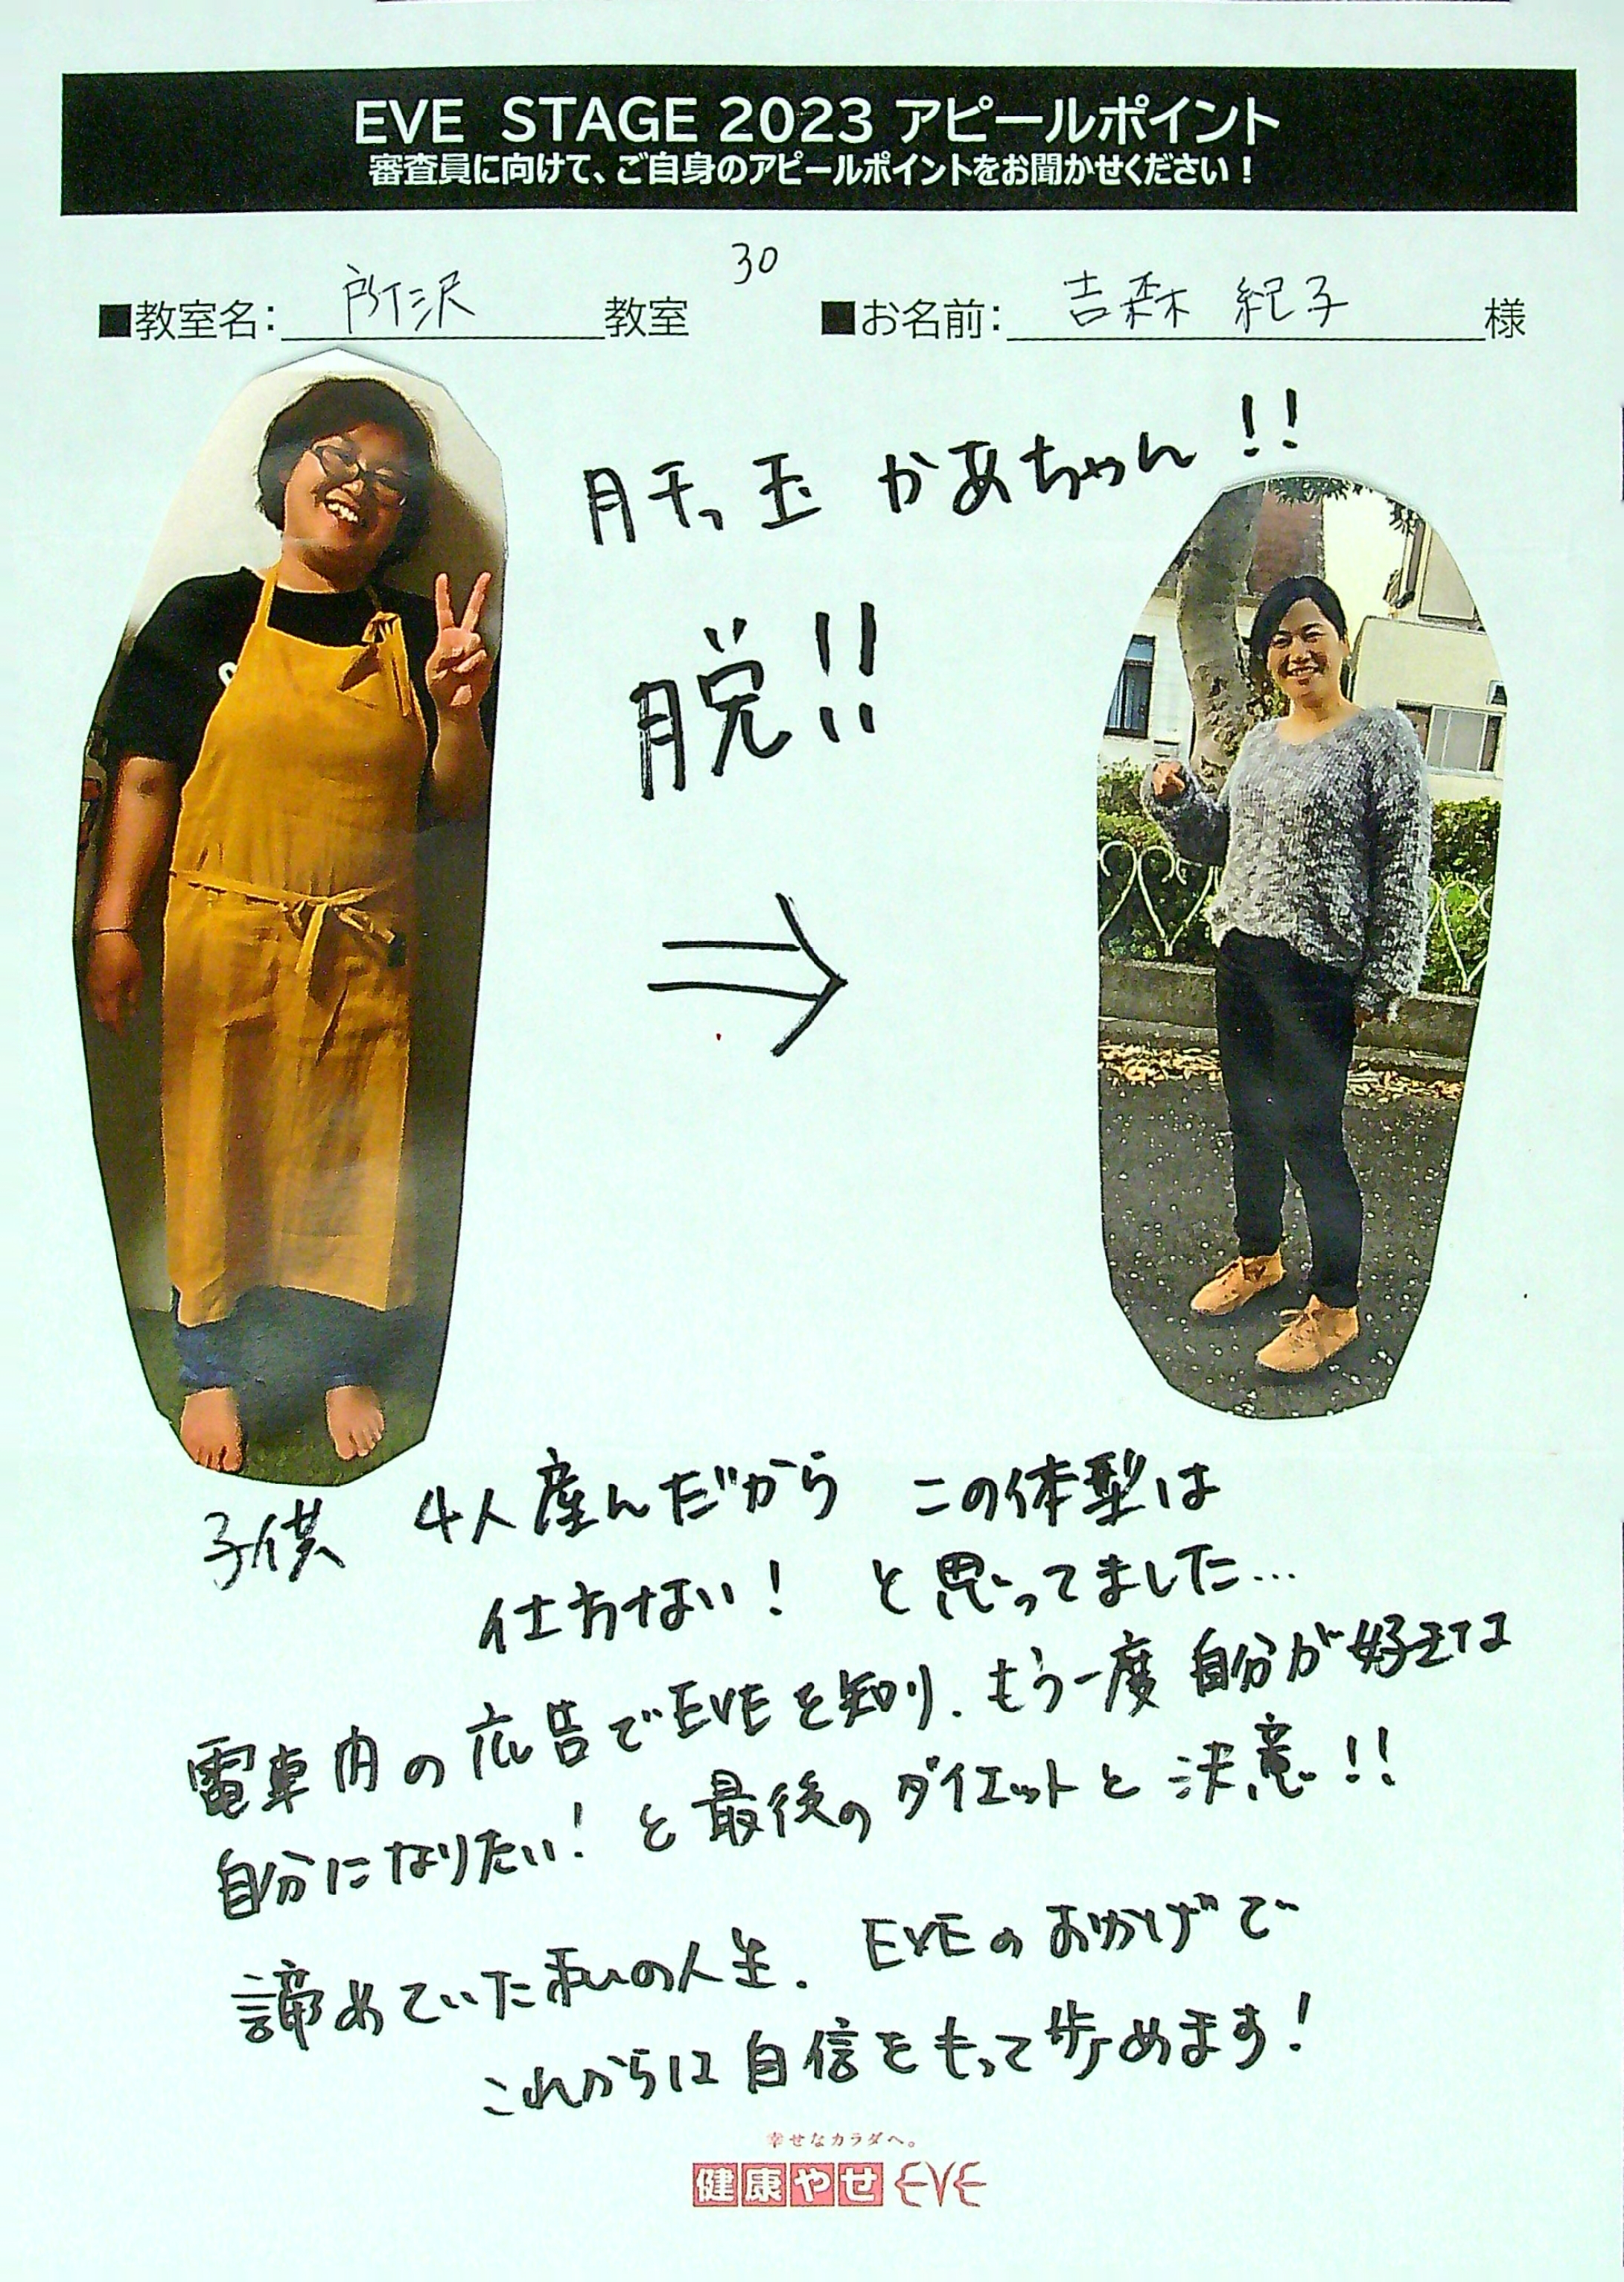 EVE STAGE 2023 アピールポイント
審査員に向けて、ご自身のアピールポイントをお聞かせください！
30
■教室名： 所沢 教室 ■お名前： 吉森 紀子 様
肝っ玉 かあちゃん!!
脱!!
⇒
子供 4人産んだから この体型は
仕方ない! と思ってました…
電車内の広告でEVEを知り、もう一度 自分が好きな
自分になりたい! と最後のダイエットと決意!!
諦めていた私の人生、EVEのおかげで
これからは自信をもって歩めます!
幸せなカラダへ。
健康やせ EVE